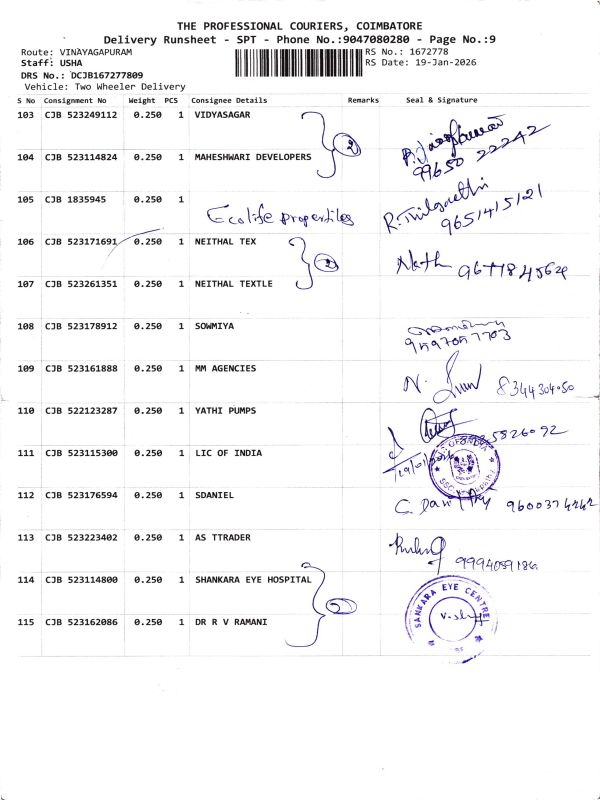 THE PROFESSIONAL COURIERS, COIMBATORE
Delivery Runsheet - SPT - Phone No.:9047080280 - Page No.:9
Route: VINAYAGAPURAM RS No.: 1672778
Staff: USHA RS Date: 19-Jan-2026
DRS No.: DCJB167277809
Vehicle: Two Wheeler Delivery
S No Consignment No Weight PCS Consignee Details Remarks Seal & Signature
103 CJB 523249112 0.250 1 VIDYASAGAR
2
99650 22242
104 CJB 523114824 0.250 1 MAHESHWARI DEVELOPERS
105 CJB 1835945 0.250 1
Ecolife properties
9651415121
106 CJB 523171691 0.250 1 NEITHAL TEX
2
107 CJB 523261351 0.250 1 NEITHAL TEXTLE
108 CJB 523178912 0.250 1 SOWMIYA
109 CJB 523161888 0.250 1 MM AGENCIES
110 CJB 522123287 0.250 1 YATHI PUMPS
111 CJB 523115300 0.250 1 LIC OF INDIA
112 CJB 523176594 0.250 1 SDANIEL
113 CJB 523223402 0.250 1 AS TTRADER
114 CJB 523114800 0.250 1 SHANKARA EYE HOSPITAL
2
SANKARA EYE CENTRE
115 CJB 523162086 0.250 1 DR R V RAMANI